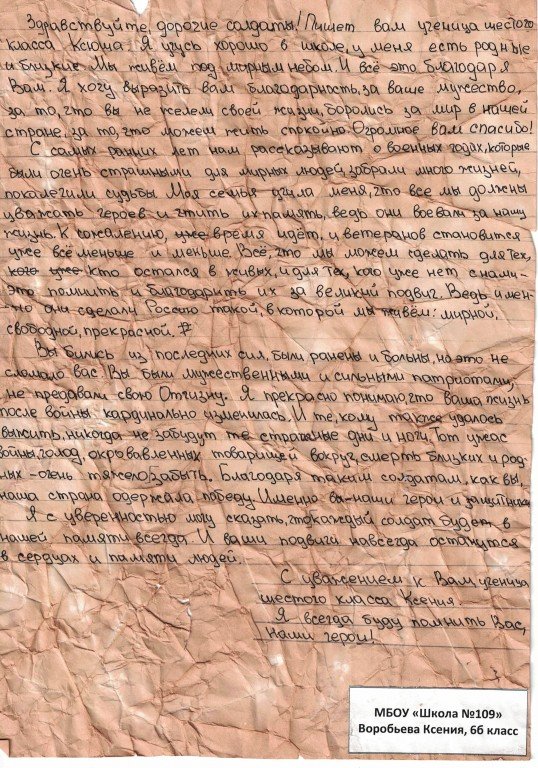 Здравствуйте, дорогие солдаты! Пишет вам ученица шестого
класса Ксюша. Я учусь хорошо в школе, у меня есть родные
и близкие. Мы живём под мирным небом. И всё это благодаря
Вам. Я хочу выразить вам благодарность, за ваше мужество,
за то, что вы не жалея своей жизни, боролись за мир в нашей
стране, за то, что можем жить спокойно. Огромное вам спасибо!
С самых ранних лет нам рассказывают о военных годах, которые
были очень страшными для мирных людей, забрали много жизней,
покалечили судьбы. Моя семья учила меня, что все мы должны
уважать героев и чтить их память, ведь они воевали за нашу
жизнь. К сожалению, уже время идёт, и ветеранов становится
уже всё меньше и меньше. Всё, что мы можем сделать для тех,
кого уже кто остался в живых, и для тех, кого уже нет с нами-
это помнить и благодарить их за великий подвиг. Ведь имен-
но они сделали Россию такой, в которой мы живём: мирной,
свободной, прекрасной.
Вы бились из последних сил, были ранены и больны, но это не
сломало вас. Вы были мужественными и сильными патриотами,
не предавали свою Отчизну. Я прекрасно понимаю, что ваша жизнь
после войны кардинально изменилась. И те, кому также удалось
выжить, никогда не забудут те страшные дни и ночи. Тот ужас
войны, голод, окровавленных товарищей вокруг, смерть близких и род-
ных - очень тяжело забыть. Благодаря таким солдатам, как вы,
наша страна одержала победу. Именно вы - наши герои и защитники.
Я с уверенностью могу сказать, что каждый солдат будет в
нашей памяти всегда. И ваши подвиги навсегда останутся
в сердцах и памяти людей.
С уважением к Вам ученица
шестого класса Ксения.
Я всегда буду помнить Вас,
наши герои!
МБОУ «Школа №109»
Воробьева Ксения, 6б класс